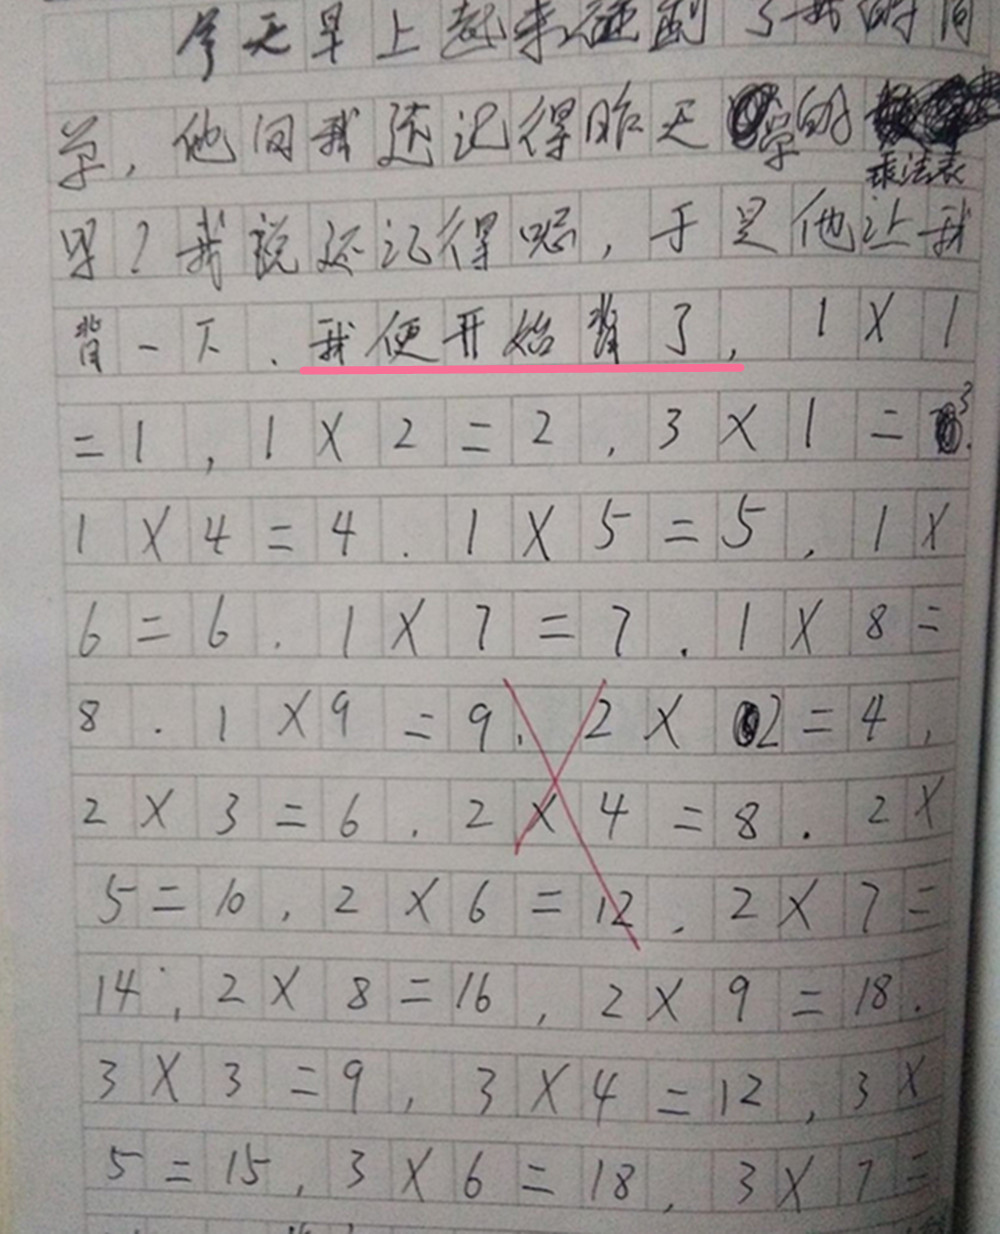 今天早上起来碰到了我的同
学,他问我还记得昨天学的
乘法表
吗?我说还记得呢,于是他让我
背一下.我便开始背了,1X1
=1,1X2=2.3X1=3.
1X4=4.1X5=5.1X
6=6.1X7=7.1X8=
8.1X9=9.2X2=4,
2X3=6.2X4=8.2X
5=10,2X6=12.2X7=
14,2X8=16,2X9=18.
3X3=9,3X4=12,3X
5=15,3X6=18,3X7=